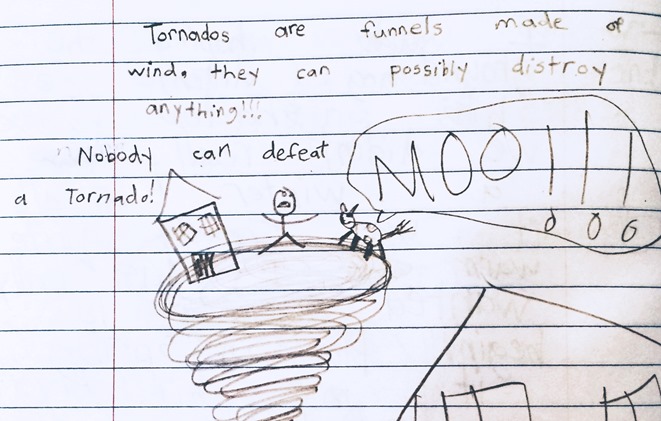 Tornados are funnels made of
wind, they can possibly distroy
anything!!!
Nobody can defeat
a Tornado!
MOO!!!